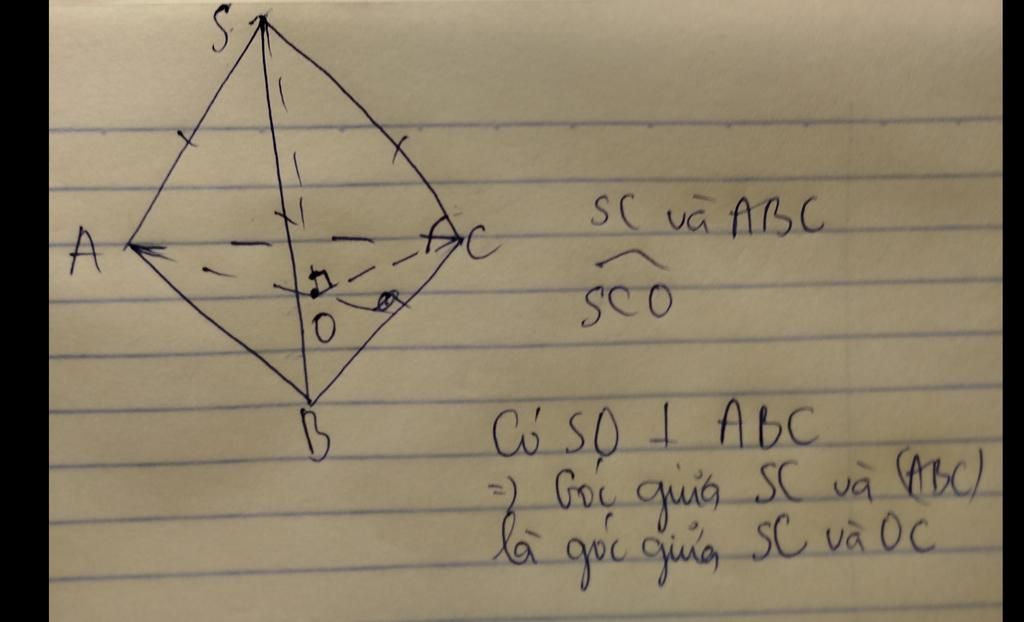 S
A
C
O
B
SC và ABC
SCO
Có SO ⊥ ABC
=) Góc giữa SC và (ABC)
là góc giữa SC và OC